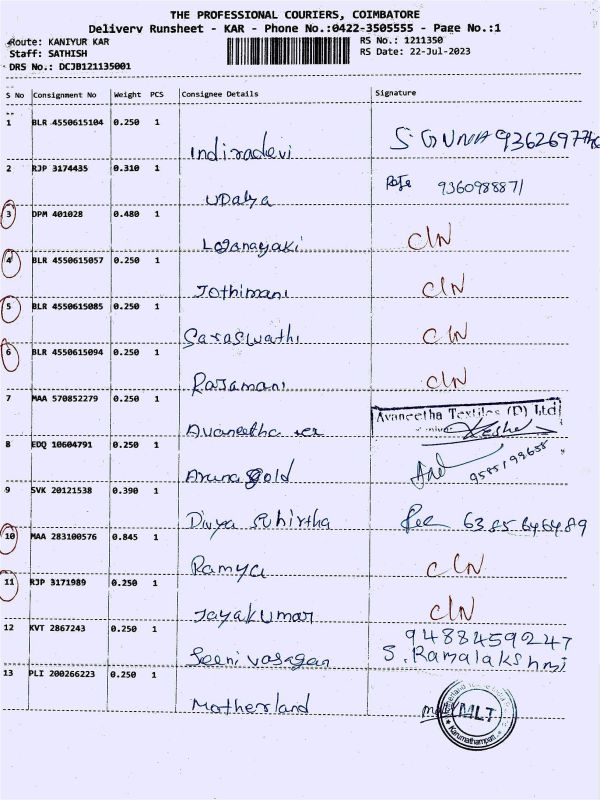 THE PROFESSIONAL COURIERS, COIMBATORE
Delivery Runsheet - KAR - Phone No.:0422-3505555 - Page No.:1
Route: KANIYUR KAR
Staff: SATHISH
DRS No.: DCJB121135001
RS No.: 1211350
RS Date: 22-Jul-2023
S No Consignment No Weight PCS Consignee Details Signature
1 BLR 4550615104 0.250 1 Indiradevi S. GUNA
2 RJP 3174435 0.310 1 Udaya 9360988871
3 DPM 401028 0.480 1 Loganayaki C/N
4 BLR 4550615057 0.250 1 Jothimani C/N
5 BLR 4550615085 0.250 1 Saraswathi C/N
6 BLR 4550615094 0.250 1 Rajamani C/N
7 MAA 570852279 0.250 1 Avaneetha Avaneetha Textiles (P) Ltd
8 EDQ 10604791 0.250 1 Aruna gold
9 SVK 20121538 0.390 1 Divya Suhirtha
10 MAA 283100576 0.845 1 Ramya C/N
11 RJP 3171989 0.250 1 Jayakumar C/N
12 KVT 2867243 0.250 1 Seenivasagan 9488459247
S. Ramalakshmi
13 PLI 200266223 0.250 1 Motherland MLT